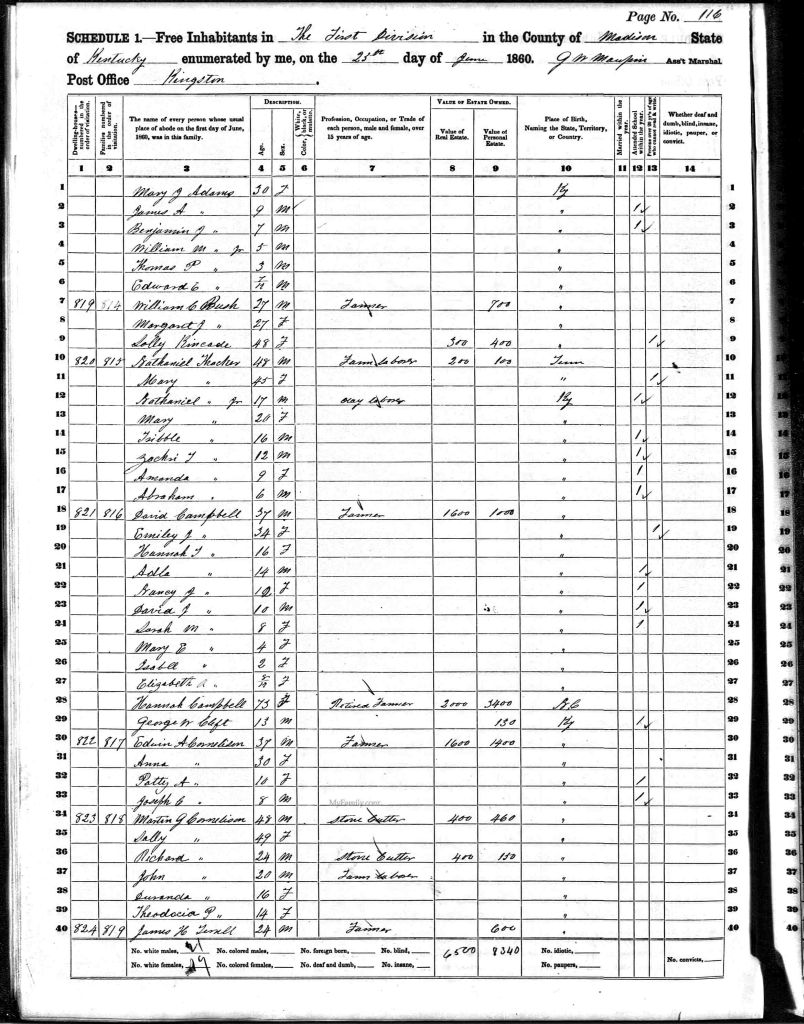 Page No. 116
SCHEDULE 1.—Free Inhabitants in The First Division in the County of Madison State
of Kentucky enumerated by me, on the 25th day of June 1860. G W Maupin Ass't Marshal
Post Office Kingston.
Dwelling-houses—numbered in the order of visitation. Families numbered in the order of visitation. The name of every person whose usual place of abode on the first day of June, 1860, was in this family. DESCRIPTION. Age. Sex. Color, White, black, or mulatto. Profession, Occupation, or Trade of each person, male and female, over 15 years of age. VALUE OF ESTATE OWNED. Value of Real Estate. Value of Personal Estate. Place of Birth, Naming the State, Territory, or Country. Married within the year. Attended School within the year. Persons over 20 y'rs of age who cannot read & write. Whether deaf and dumb, blind, insane, idiotic, pauper, or convict.
1 2 3 4 5 6 7 8 9 10 11 12 13 14
1 Mary J Adams 30 F Ky 1
2 James A " 9 M " 1 2
3 Benjamin J " 7 M " 1 3
4 William M " Jr 5 M " 4
5 Thomas P " 3 M " 5
6 Edward C " M " 6
7 819 814 William C Bush 27 M Farmer 700 " 7
8 Margaret J " 27 F " 8
9 Solly Kincade 48 F 300 400 " 1 9
10 820 815 Nathaniel Thacker 48 M Farm laborer 200 100 Tenn 10
11 Mary " 45 F " 1 11
12 Nathaniel " Jr 17 M day laborer Ky 1 12
13 Mary " 20 F " 13
14 Tribble " 16 M " 1 14
15 Zachri T " 12 M " 1 15
16 Amanda " 9 F " 1 16
17 Abraham " 6 M " 1 17
18 821 816 David Campbell 37 M Farmer 1600 1000 " 18
19 Emiley J " 34 F " 1 19
20 Hannah T " 16 F " 20
21 Adla " 14 M " 1 21
22 Nancy J " 12 F " 1 22
23 David J " 10 M " 1 23
24 Sarah M " 8 F " 1 24
25 Mary E " 4 F " 25
26 Isabll " 2 F " 26
27 Elizabeth A " F " 27
28 Hannah Campbell 73 F Retired Farmer 2000 3400 N.C 28
29 George W Clift 13 M 130 Ky 1 29
30 822 817 Edwin A Cornelison 37 M Farmer 1600 1400 " 30
31 Anna " 30 F " 31
32 Pattey A " 10 F " 1 32
33 Joseph C " 8 M " 1 33
MyFamily.com
34 823 818 Martin G Cornelison 48 M Stone Cutter 400 460 " 34
35 Sally " 49 F " 35
36 Richard " 24 M Stone Cutter 400 150 " 36
37 John " 20 M Farm laborer " 37
38 Curanda " 16 F " 38
39 Theodocia P " 14 F " 39
40 824 819 James H Terrell 24 M Farmer 600 " 40
No. white males, 21 No. colored males, No. foreign born, No. blind, 6500 8340 No. idiotic,
No. white females, 19 No. colored females, No. deaf and dumb, No. insane, No. paupers, No. convicts,